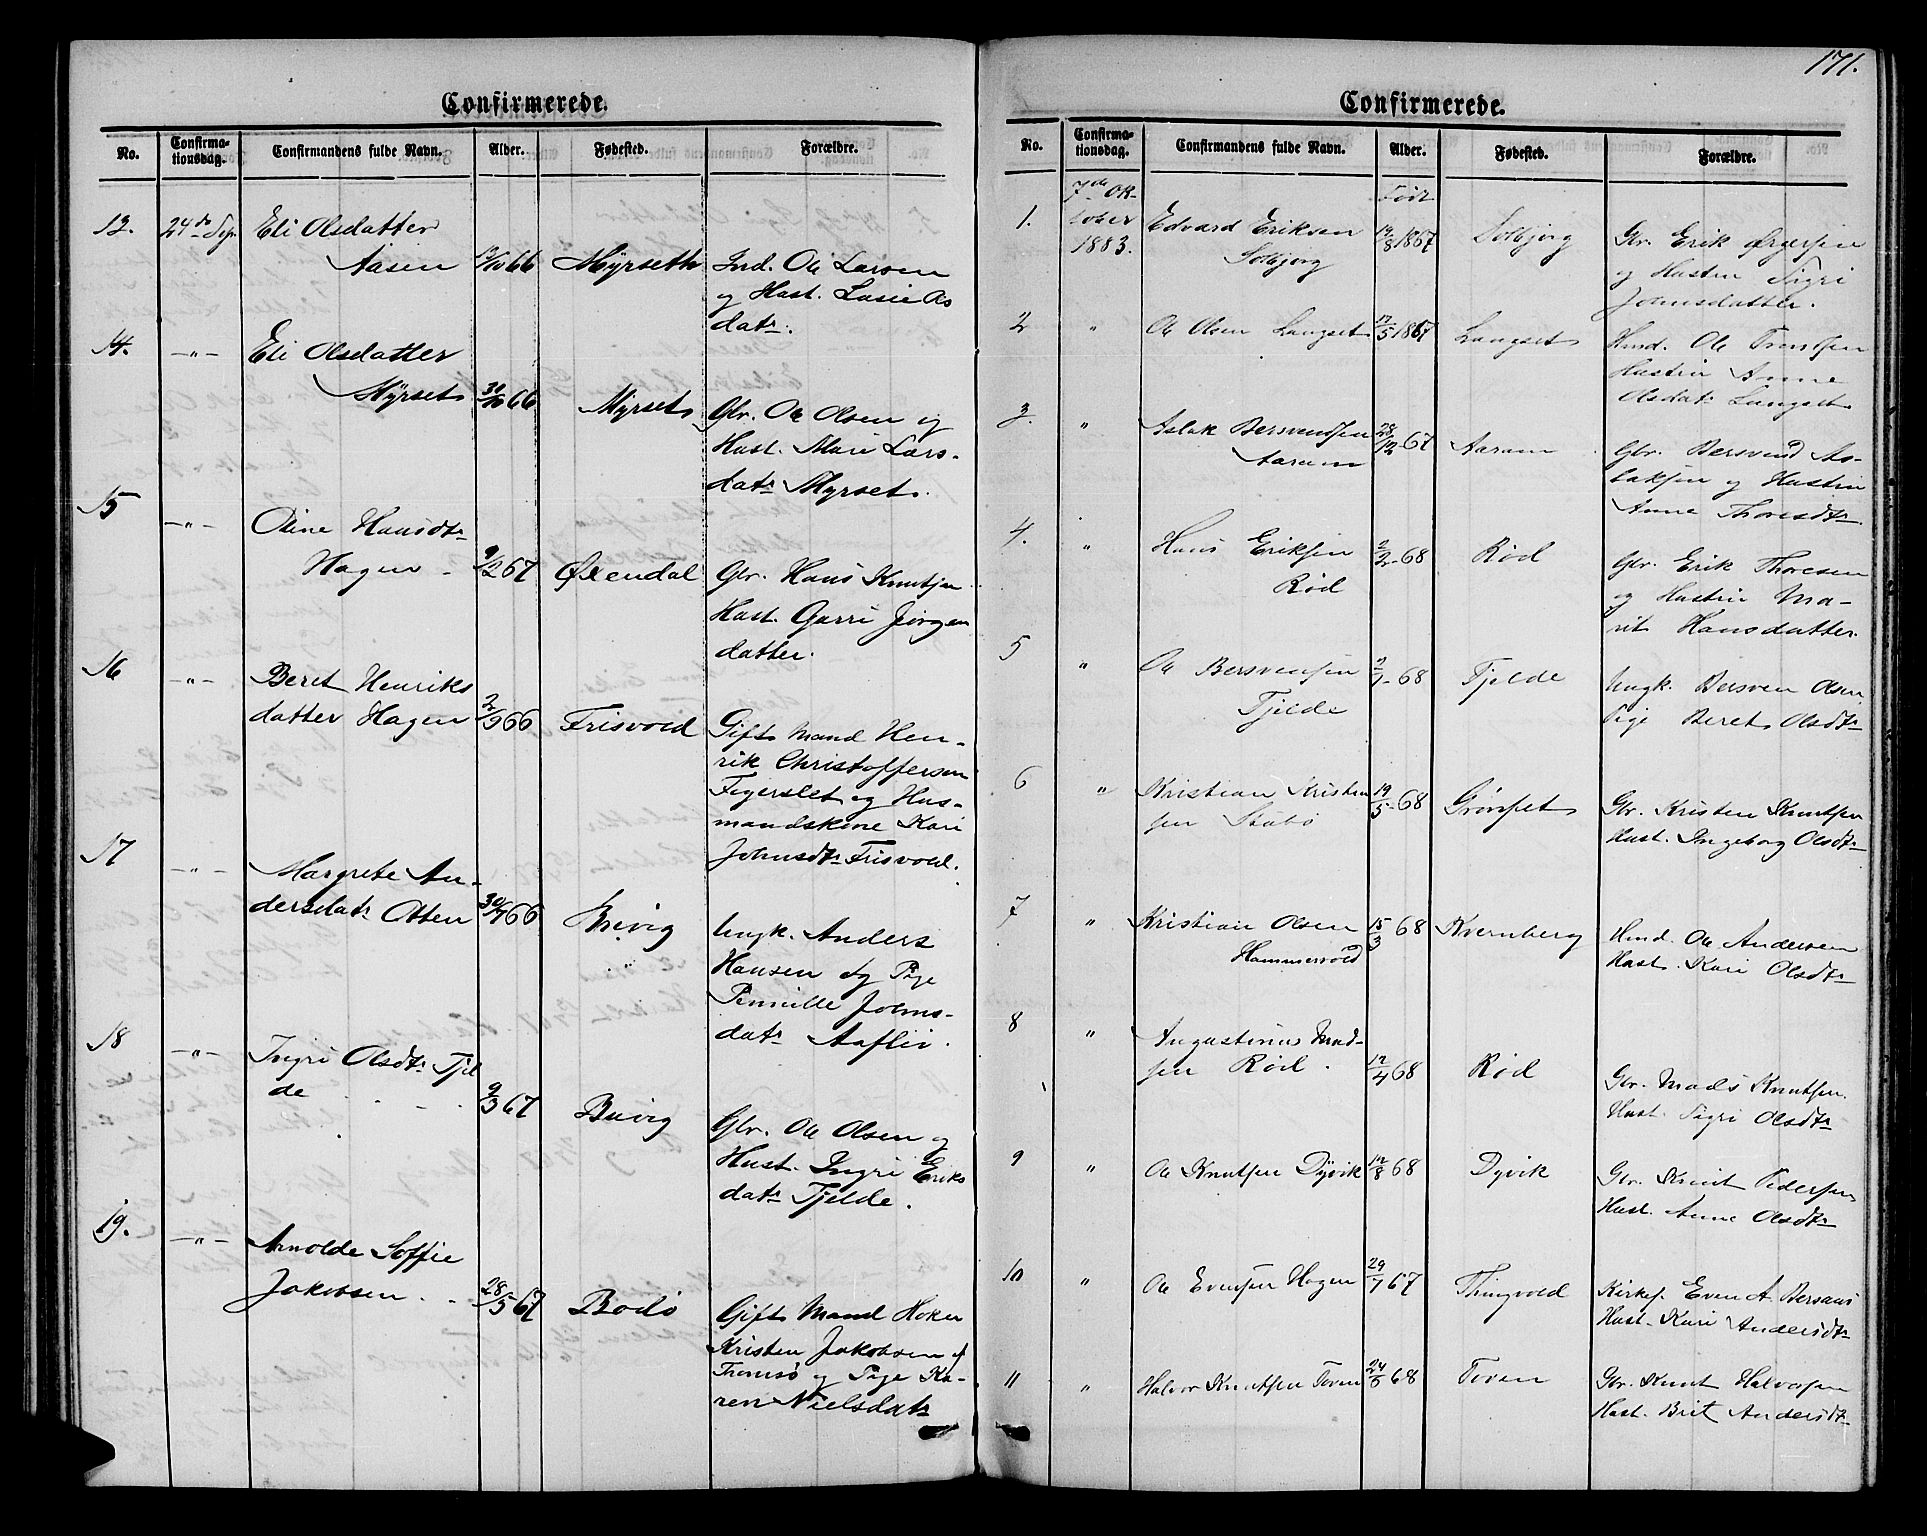 Confirmerede.
No. Confirma-tionsdag. Confirmandens fulde Navn. Alder. Fødested. Forældre.
13. 24de Sep. Eli Olsdatter
Aasen 12/10 66 Myrseth Ind. Ole Larsen
og Hust.
datr.
14. —"— Eli Olsdatter
Myrset 30/10 66 Myrset Gbr. Ole Olsen og
Hust. Mari Lars-
datr Myrset.
15 —"— Oline Hansdtr
Hagen 9/12 67 Øxendal Gbr. Hans Knutsen
Hust. Gurri Jørgen
datter.
16 —"— Beret Henriks
datter Hagen 2/9 66 Frisvold Gift Mand Hen-
rik Christoffersen
og Hus-
mandskone Kari
Johnsdtr Frisvold.
17 —"— Margrete An-
dersdatr Otten 30/7 66 Ungk. Anders
Hansen og Pige
Pernille Johns-
datr Aaflei.
18 —"— Ingri Olsdtr Tjel
de 9/3 67 Buvig Gbr. Ole Olsen og
Hust. Ingri Eriks
datr Tjelde.
19. —"— Arnolde Soffie
Jakobsen 28/5 67 Bodö Gift Mand Høker
Kristen Jakobsen af
Tromsø og Pige Ka-
ren Nielsdatr
171.
Confirmerede.
No. Confirma-tionsdag. Confirmandens fulde Navn. Alder. Fødested. Forældre.
7de Ok- Født
1. tober Edvard Eriksen 19/8 1867 Solbjørg Gbr. Erik
1883. Solbjørg og Hustru Sigri
Johnsdatter.
2 " Ole Olsen Langset 12/5 1867 Langset Hmd. Ole
Hustru Anne
Olsdatr Langset
3. " Aslak Bersvendsen 28/12 67 Aaram Gbr. Bersvend As-
Aaram laksen og Hustru
Anne Thoresdtr
4. " Hans Eriksen 2/2 68 Rød Gbr. Erik Thoresen
Rød og Hustru Ma-
rit Hansdatter.
5 " Ole Bersvensen 2/1 68 Tjelde Ungk. Bersven Olsen
Tjelde Pige Beret Olsdtr
6 " Kristian Kristen 19/5 68 Grønset Gbr. Kristen Knutsen
sen Stubø Hust. Ingeborg Olsdtr
7 " Kristian Olsen 15/3 68 Kvernberg Hmd. Ole Andersen
Hammervold Hust. Kari Olsdtr
8 " Augustinus Mad-
sen Rød. 12/4 68 Rød Gbr. Mads Knutsen
Hust. Sigri Olsdtr
9 " Ole Knutsen Dyvik 12/8 68 Dyvik Gbr. Knut Pedersen
Hust. Anne Olsdtr
10 " Ole Evensen Hagen 29/7 67 Thingvold Kirkes. Even A.
Hust. Kari Andersdtr
11 " Halvor Knutsen Torven 24/5 68 Torven Gbr. Knut Halvorsen
Hust. Brit Andersdtr